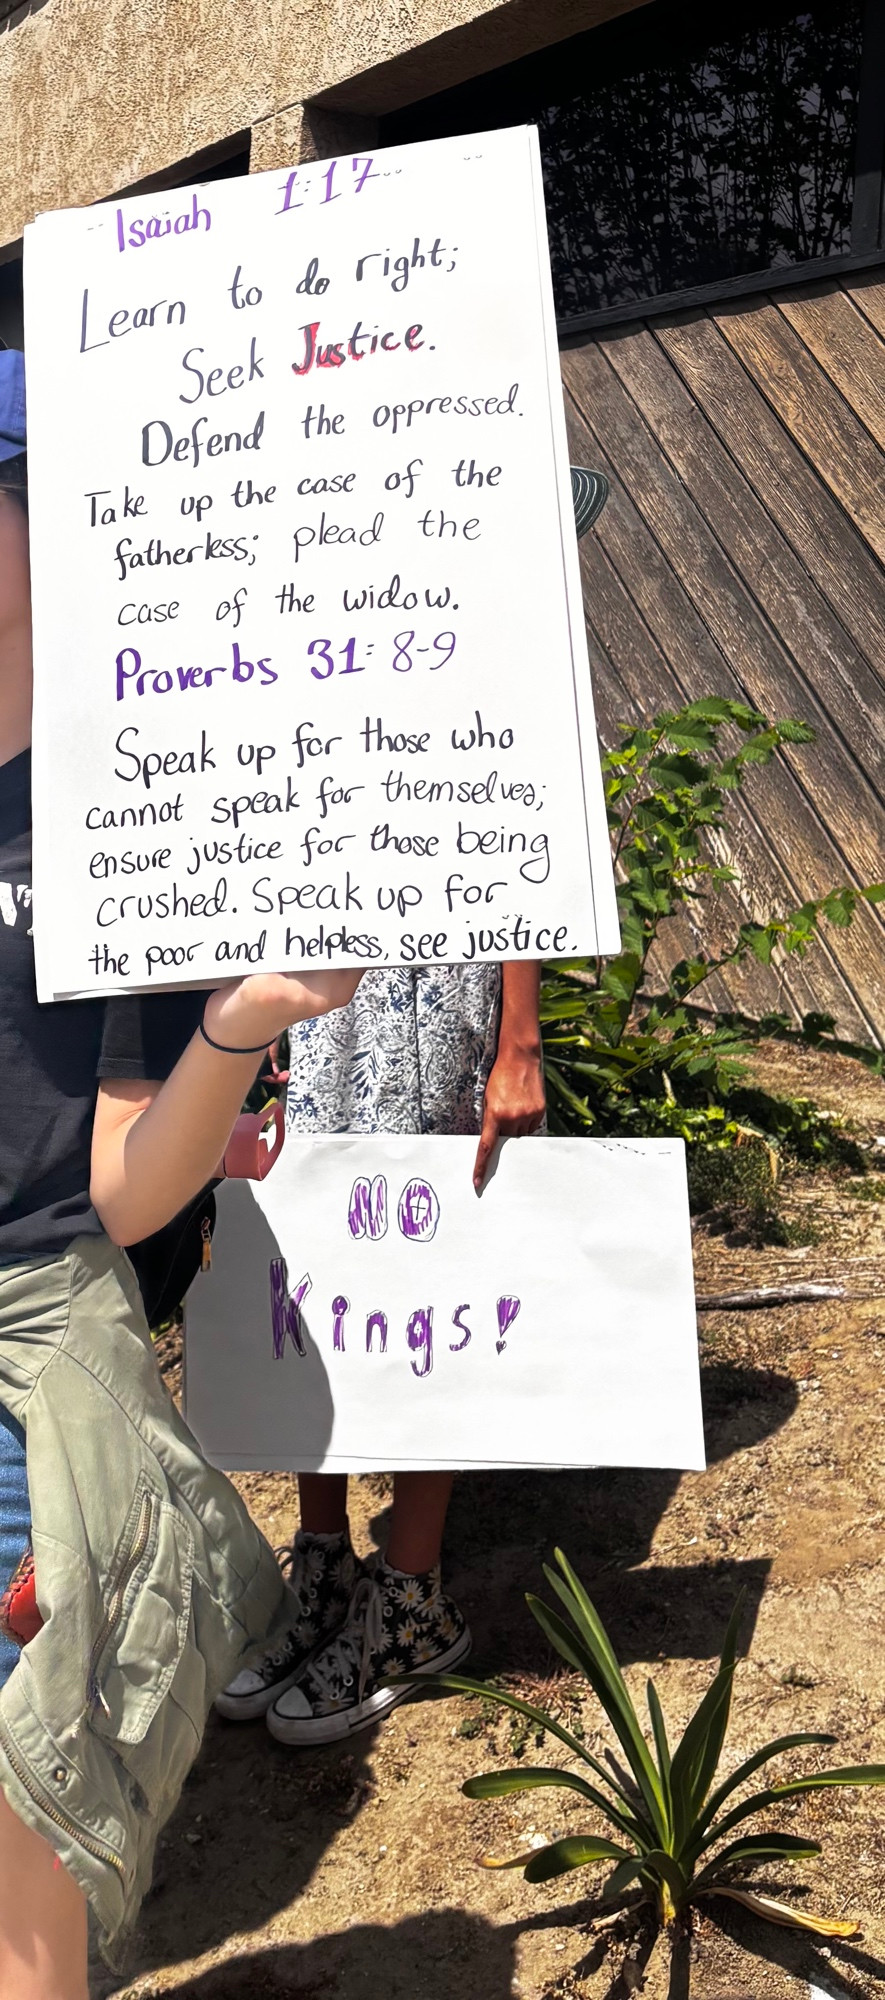 Isaiah 1:17
Learn to do right;
Seek Justice.
Defend the oppressed.
Take up the case of the
fatherless; plead the
case of the widow.
Proverbs 31:8-9
Speak up for those who
cannot speak for themselves;
ensure justice for those being
crushed. Speak up for
the poor and helpless, see justice.
NO
Kings!